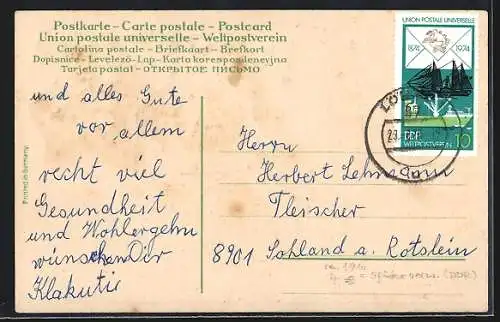 Postkarte – Carte postale – Postcard
Union postale universelle – Weltpostverein
Cartolina postale – Briefkaart – Brefkort
Dopisnice – Levelező-Lap – Karta korespondencyjna
Tarjeta postal – ОТКРЫТОЕ ПИСЬМО
und alles Gute
vor allem
recht viel
Gesundheit
und Wohlergehn
wünschen Dir
Printed in Germany
UNION POSTALE UNIVERSELLE
1874 1974
DDR
WELTPOSTVEREIN 10
Herrn
Herbert Lehmann
Fleischer
8901 Sohland a. Rotstein
(DDR)